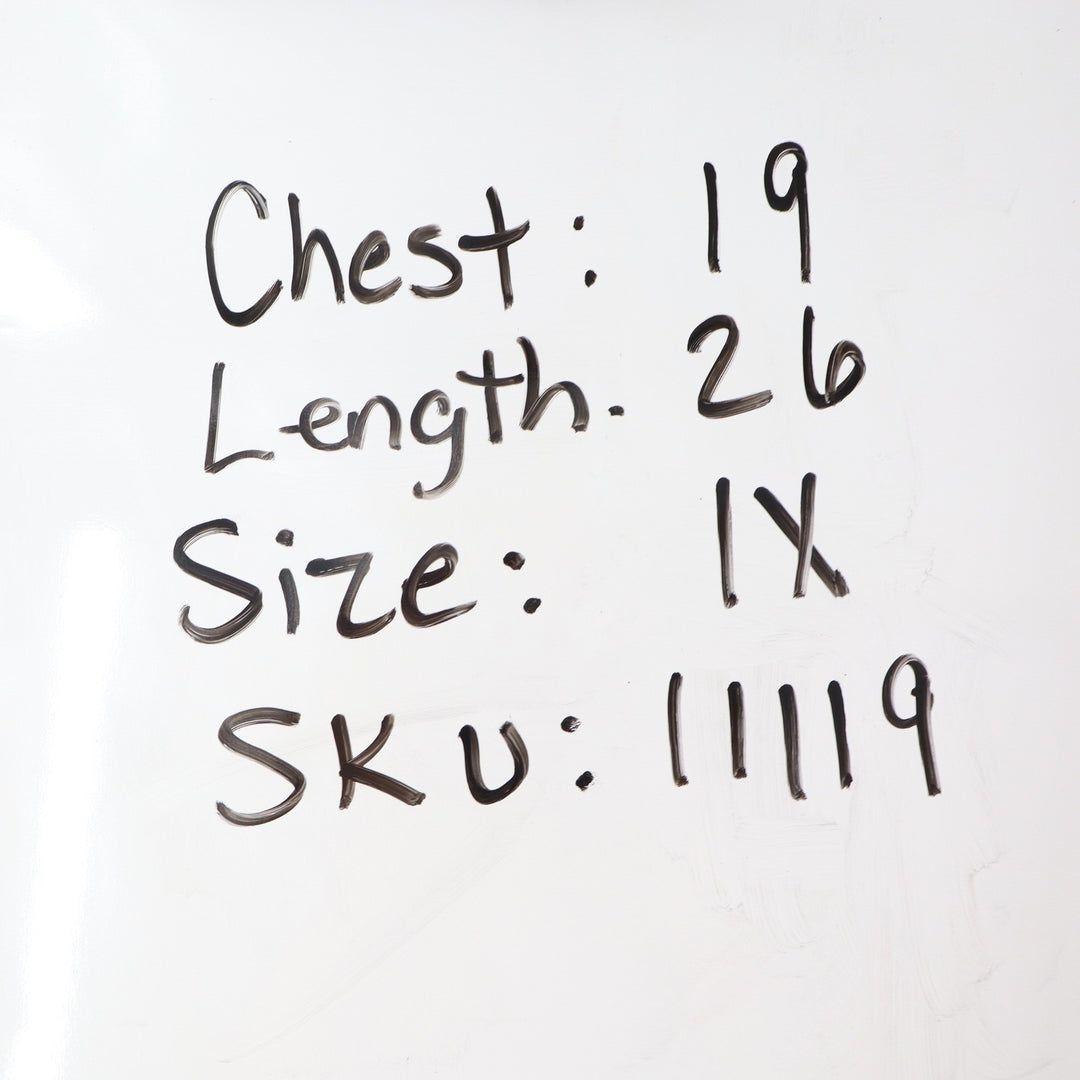 Chest: 19
Length. 26
Size: 1X
SKU: 11119